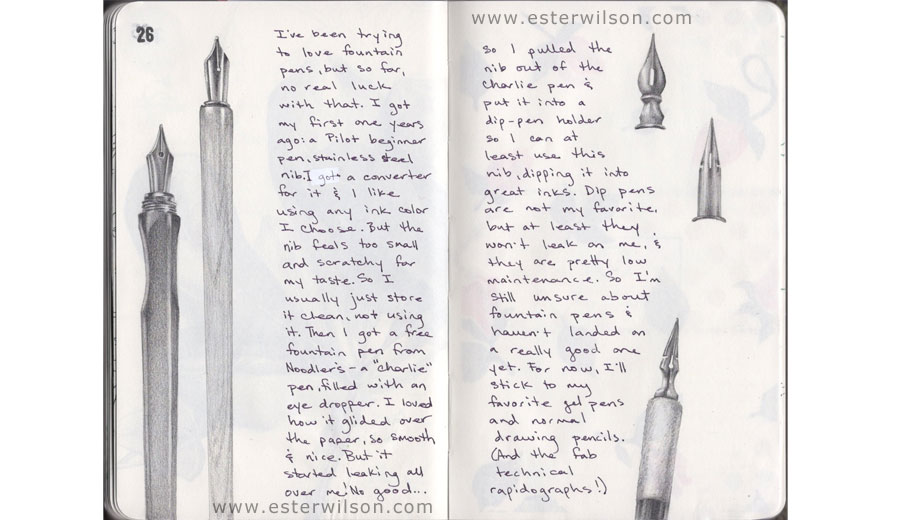 26
I've been trying
to love fountain
pens, but so far,
no real luck
with that. I got
my first one years
ago: a Pilot beginner
pen, stainless steel
nib. I got a converter
for it & I like
using any ink color
I choose. But the
nib feels too small
and scratchy for
my taste. So I
usually just store
it clean, not using
it. Then I got a free
fountain pen from
Noodler's - a "Charlie"
pen, filled with an
eye dropper. I loved
how it glided over
the paper, so smooth
& nice. But it
started leaking all
over me! No good...
www.esterwilson.com
www.esterwilson.com
so I pulled the
nib out of the
Charlie pen &
put it into a
dip-pen holder
so I can at
least use this
nib, dipping it into
great inks. Dip pens
are not my favorite,
but at least they
won't leak on me, &
they are pretty low
maintenance. So I'm
still unsure about
fountain pens &
haven't landed on
a really good one
yet. For now, I'll
stick to my
favorite gel pens
and normal
drawing pencils.
(And the fab
technical
rapidographs!)